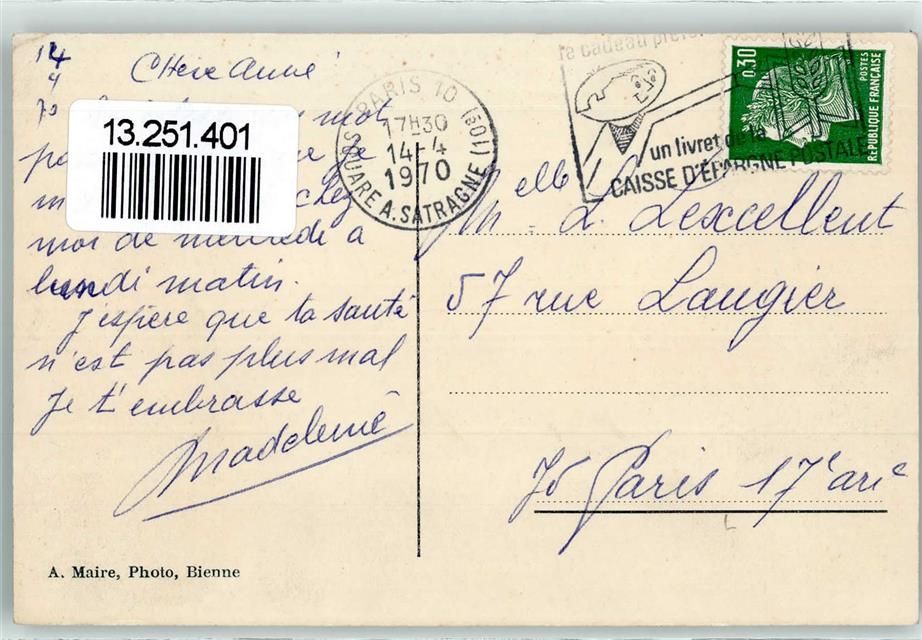 14
4
70
Chère Anne
mot
je
chez
moi de mercredi a
lundi matin.
J'espère que ta santé
n'est pas plus mal
Je t'embrasse
Madeleine
A. Maire, Photo, Bienne
13.251.401
PARIS 10 (10E)
17H30
14-4
1970
SQUARE A. SATRAGNE (1)
le cadeau
un livret de la
CAISSE D'ÉPARGNE POSTALE
0,30
POSTES
RÉPUBLIQUE FRANÇAISE
Melle L. Lexcellent
57 rue Laugier
75 Paris 17e arre